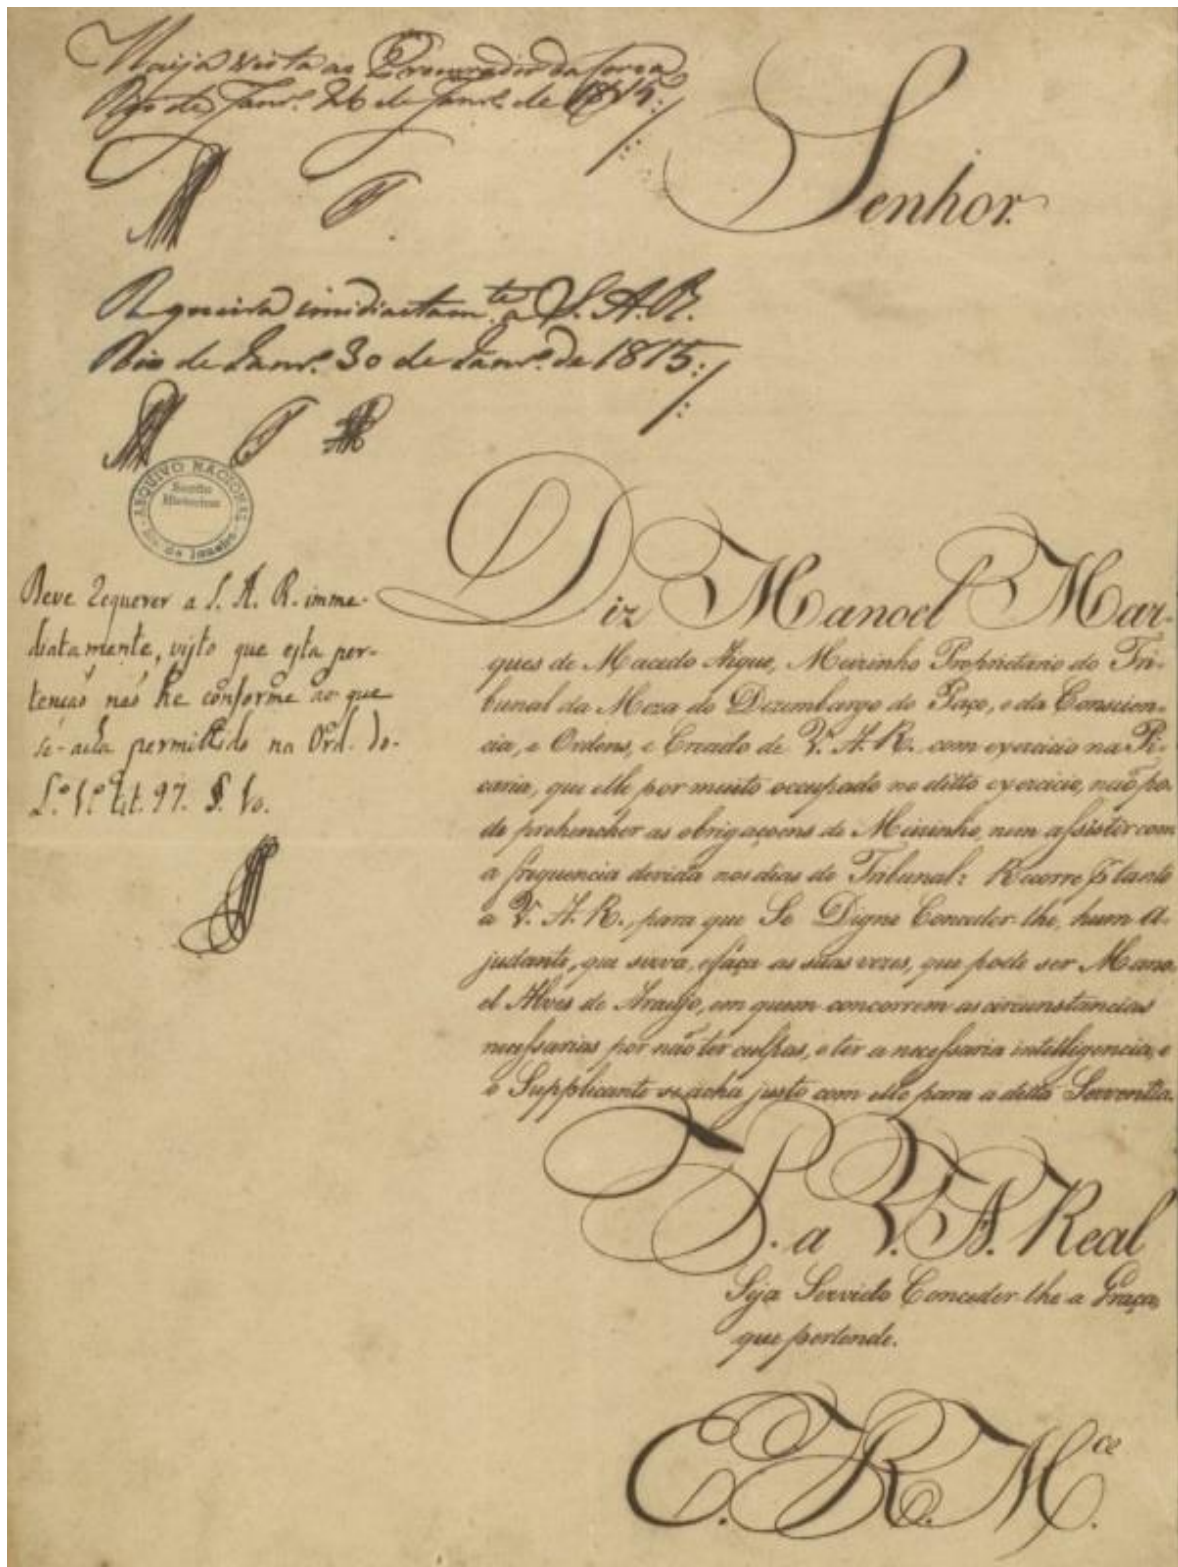 Haija vista ao Procurador da Coroa
Rio de Janr.º 26 de Janr.º de 1815:/
Senhor.
Requeira imidiactam.te a S. A. R.
Rio de Janr.º 30 de Janr.º de 1815:/
ARQUIVO NACIONAL
Secção
Historica
Rio de Janeiro
Deve Requerer a S. A. R. imme-
diatamente, visto que esta per-
tençaõ naõ he conforme ao que
se-acha permittido na Ord. do-
L.º 1.º tit. 97. §. 10.
Diz Manoel Mar-
ques de Macedo Meirinho Proprietario do Tri-
bunal da Meza do Dezembargo do Paço, e da Conscien-
cia, e Ordens, e Creado de V. A. R. com exercicio na Pi-
caria, que elle por muito occupado no ditto exercicio, naõ po-
de prehencher as obrigaçoens de Meirinho, nem assistir com
a frequencia devida nos dias de Tribunal: Recorre pr tanto
a V. A. R., para que Se Digne Conceder-lhe, hum A-
judante, que sirva, e faça as suas vezes, que pode ser Mano-
el Alves de Araujo, em quem concorrem as circunstancias
necessarias por naõ ter culpas, e ter a necessaria intelligencia, e
o Supplicante se acha justo com elle para a ditta Serventia.
P. a V. A. Real
Seja Servido Conceder-lhe a Graça,
que pertende.
E. R. M.ce